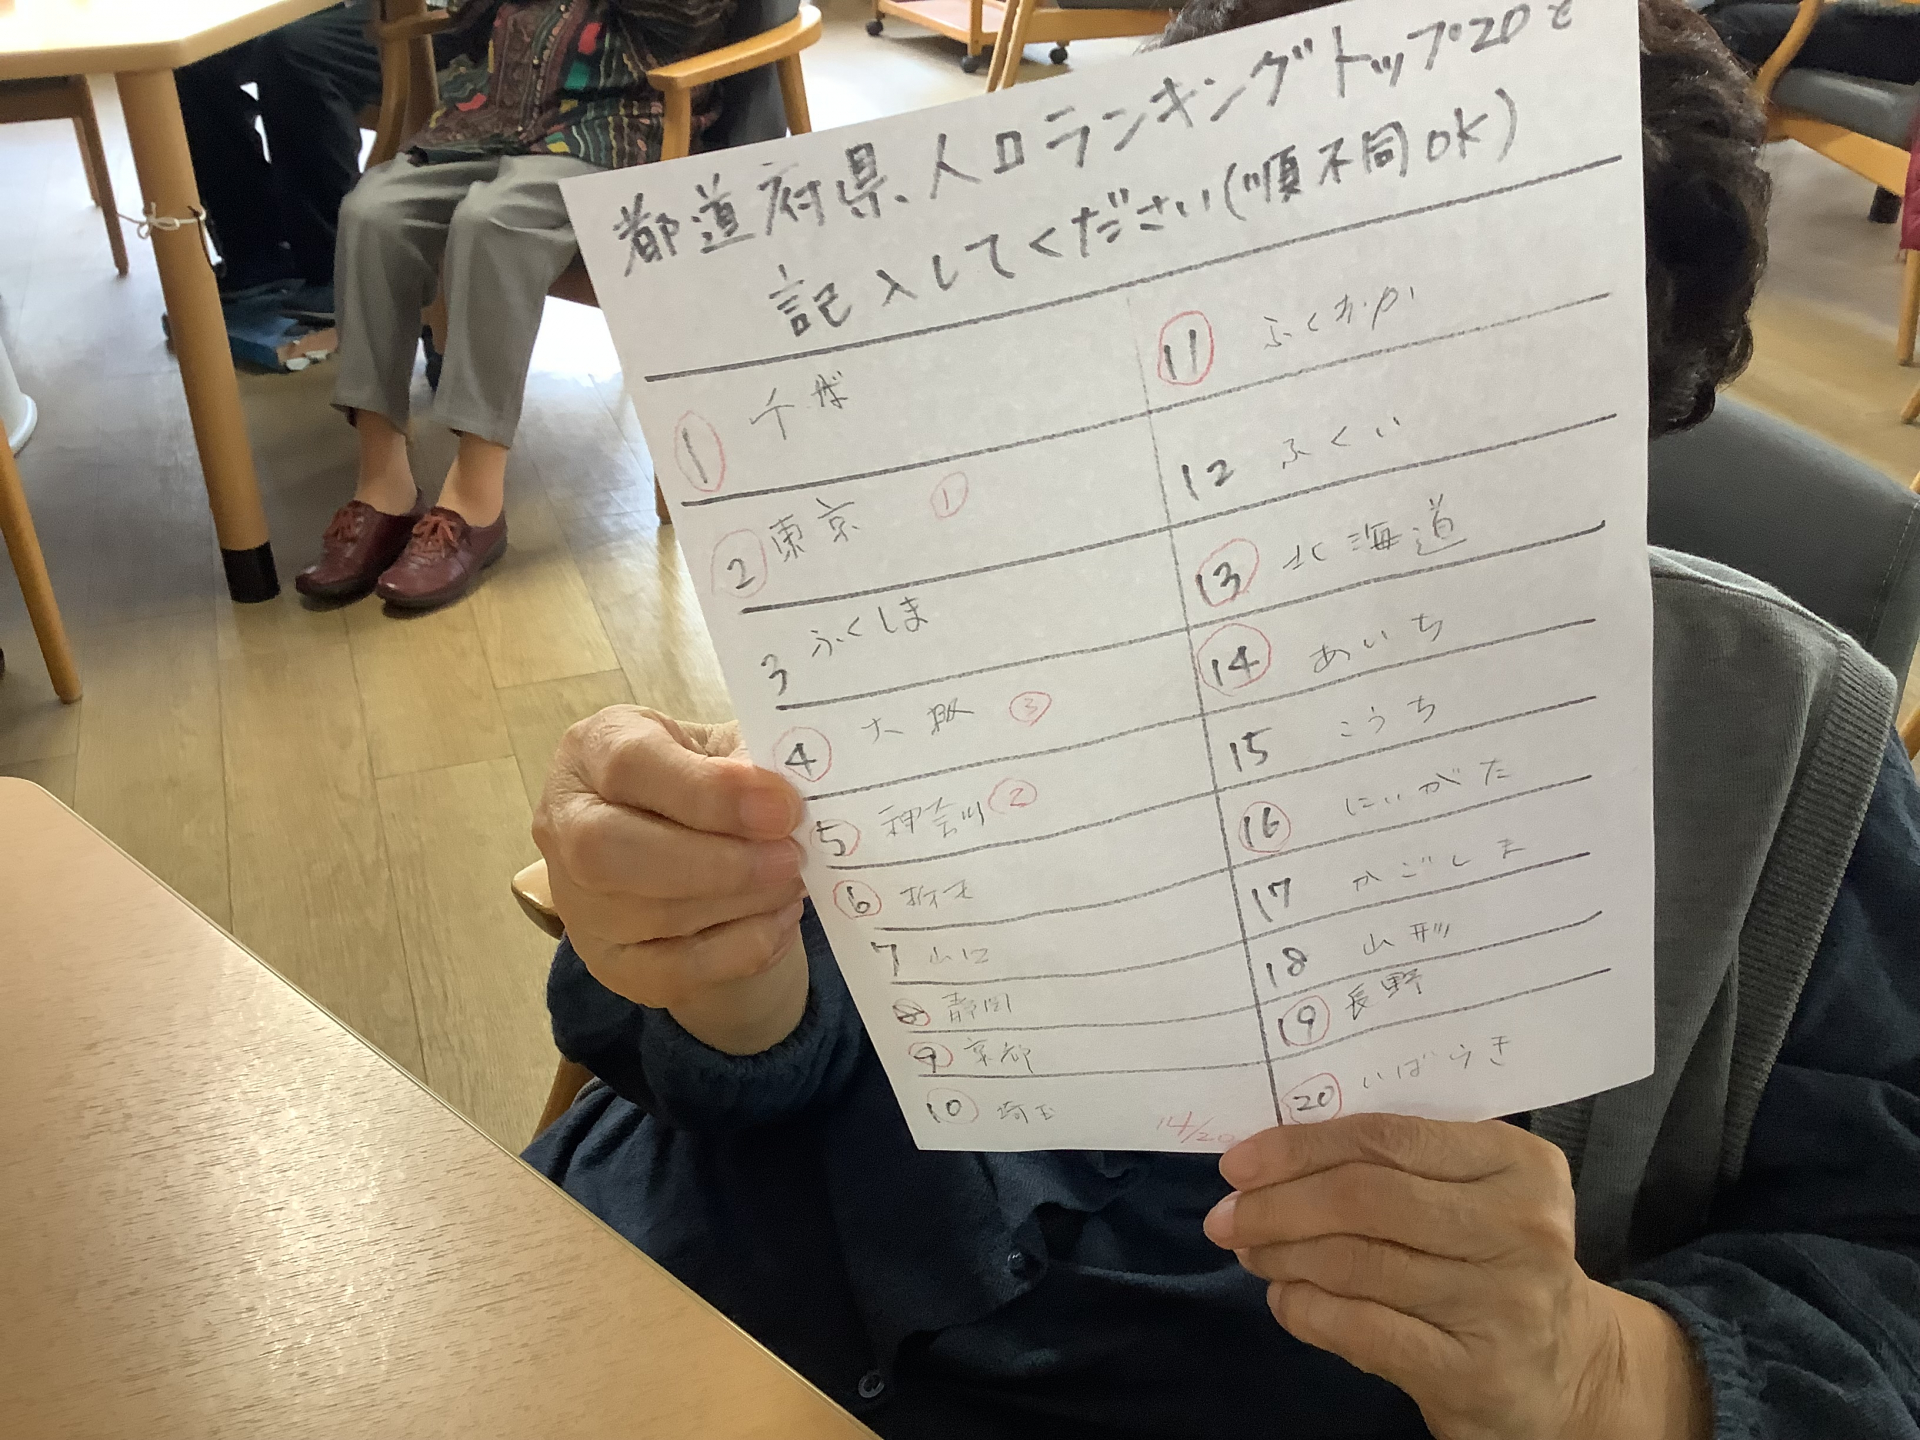 都道府県、人口ランキングトップ20を
記入してください(順不同OK)
1 千葉
2 東京 ①
3 ふくしま
4 大阪 ③
5 神奈川 ②
6 栃木
7 山口
8 静岡
9 京都
10 埼玉
14/20
11 ふくおか
12 ふくい
13 北海道
14 あいち
15 こうち
16 にいがた
17 かごしま
18 山形
19 長野
20 いばらき